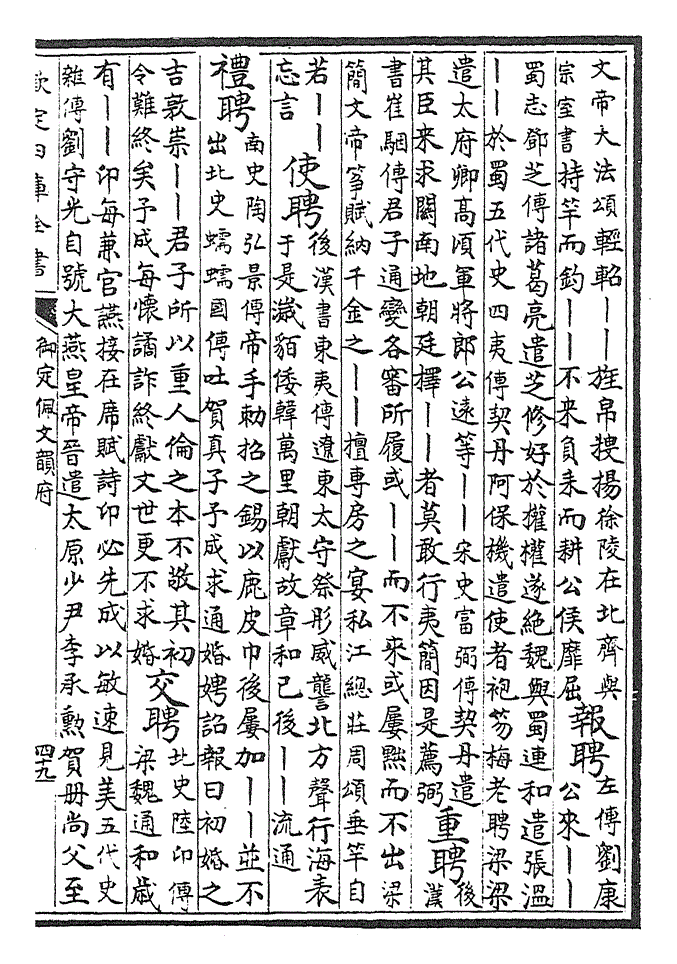 文帝大法頌輕軺——旌帛搜揚徐陵在北齊與
宗室書持竿而釣——不来負耒而耕公侯靡屈
報聘
左傳劉康
公來——
蜀志鄧芝傳諸葛亮遣芝修好於權權遂絶魏與蜀連和遣張温
——於蜀五代史四夷傳契丹阿保機遣使者袍笏梅老聘梁梁
遣太府卿高頃軍將郎公遠等——宋史富弼傳契丹遣
其臣来求關南地朝廷擇——者莫敢行夷簡因是薦弼
重聘
後
漢
書崔駰傳君子通變各審所履或——而不來或屢黜而不出梁
簡文帝箏賦納千金之——擅專房之宴私江總莊周頌垂竿自
若——
忘言
使聘
後漢書東夷傳遼東太守祭肜威讋北方聲行海表
于是濊貊倭韓萬里朝獻故章和已後——流通
禮聘
南史陶弘景傳帝手勅招之錫以鹿皮巾後屢加——並不
出北史蠕蠕國傳吐賀真子予成求通婚娉詔報曰初婚之
吉敦崇——君子所以重人倫之本不敬其初
令難終矣予成每懷譎詐終獻文世更不求婚
交聘
北史陸卬傳
梁魏通和歲
有——卬每兼官讌接在席賦詩卬必先成以敏速見美五代史
雜傳劉守光自號大燕皇帝晉遣太原少尹李承勲賀册尚父至
欽定四庫全書
御定佩文韻府
四十九